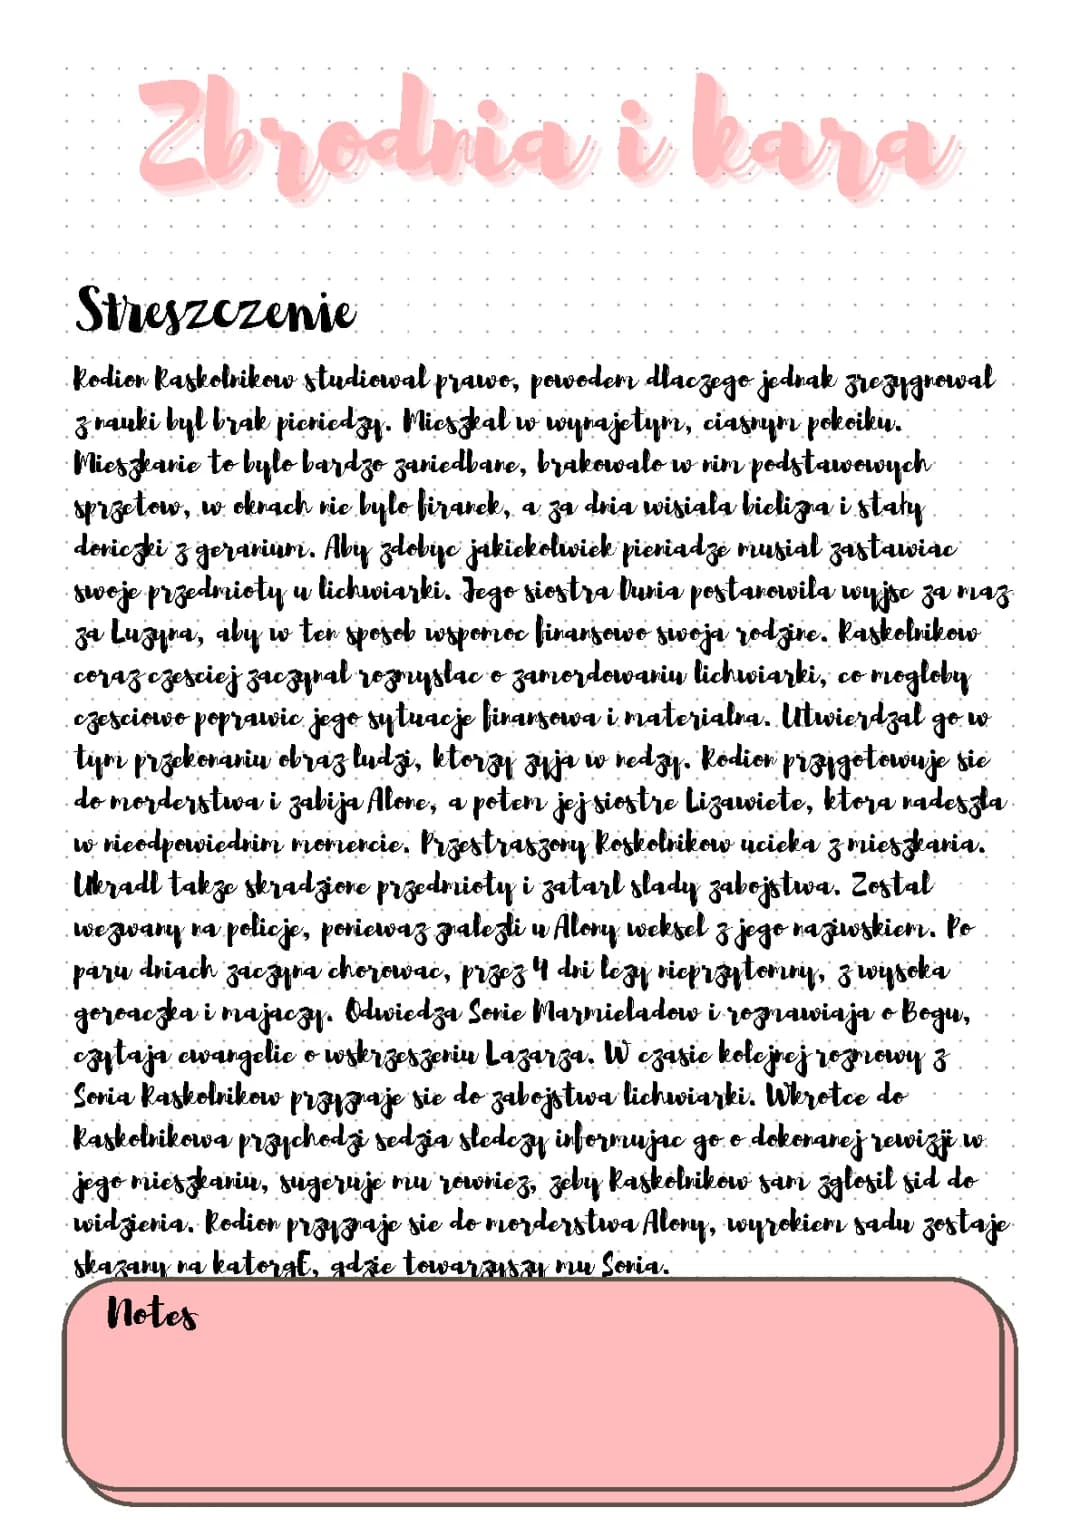 Zbrodnia i kara
Streszczenie
Rodion Raskolnikow studiowal prawo, powodem dlaczego jednak zrezygnowal
z nauki byl brak pieniedzy. Mieszkal w wynajetym, ciasnym pokoiku.
Mieszkanie to bylo bardzo zaniedbane, brakowalo w nim podstawowych
sprzetow, w oknach nie bylo firanek, a za dnia wisiala bielizna i stały
doniczki z geranium. Aby zdobyc jakiekolwiek pieniadze musial zastawiac
swoje przedmioty u lichwiarki. Jego siostra Dunia postanowila wyjsc za maz
za Luzyna, aby w ten sposob wspomoc finansowo swoja rodzine. Raskolnikow
coraz czesciej zaczynal rozmyslac o zamordowaniu lichwiarki, co mogloby
czesciowo poprawic jego sytuacje finansowa i materialna. Utwierdzal go w
tym przekonaniu obraz ludzi, ktorzy zyja w nedzy. Rodion przygotowuje sie
do morderstwa i zabija Alone, a potem jej siostre Lizawiete, ktora nadeszła
w nieodpowiednim momencie. Przestraszony Roskolnikow ucieka z mieszkania.
Ukradl takze skradzione przedmioty i zatarl slady zabojstwa. Zostal
wezwany na policje, poniewaz znalezli u Alony weksel z jego naziwskiem. Po
paru dniach zaczyna chorowac, przez 4 dni lezy nieprzytomny, z wysoka
goroaczka i majaczy. Odwiedza Sonie Marmieladow i rozmawiaja o Bogu,
czytaja ewangelie o wskrzeszeniu Lazarza. W czasie kolejnej rozmowy z
Sonia Raskolnikow przyznaje sie do zabojstwa lichwiarki. Wkrotce do
Raskolnikowa przychodzi sedzia sledczy informujac go o dokonanej rewizji w
jego mieszkaniu, sugeruje mu rowniez, zeby Raskolnikow sam zglosil sid do
widzienia. Rodion przyznaje sie do morderstwa Alony, wyrokiem sadu zostaje
skazany na katorgĘ, gdzie towarzyszy mu Sonia.
Notes